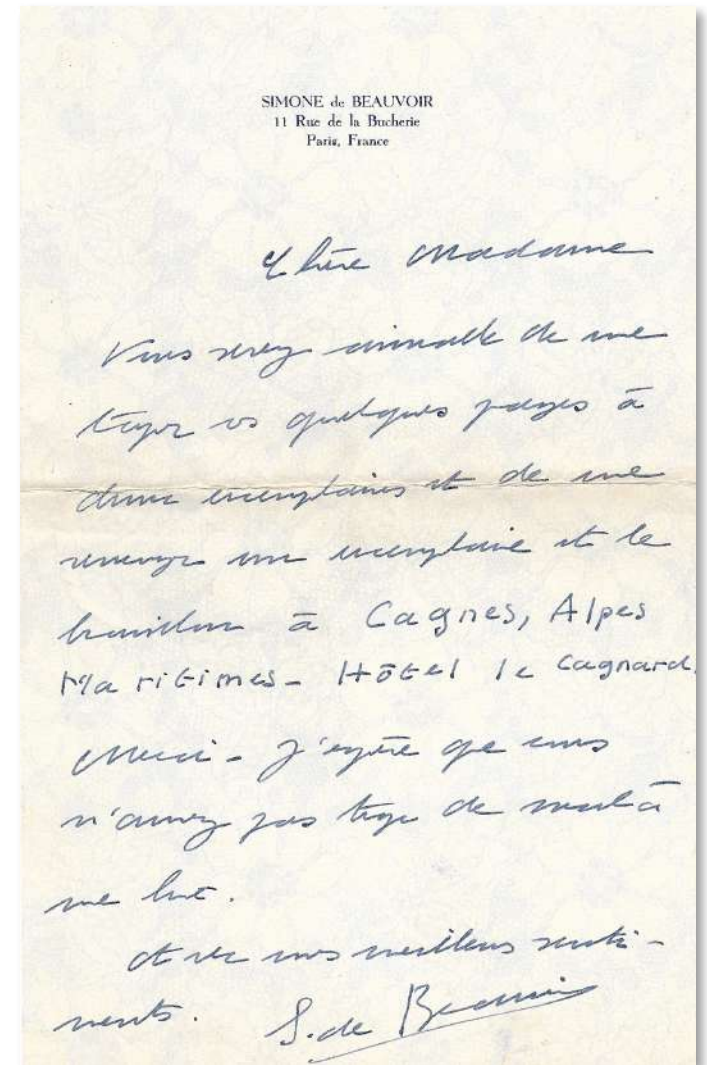 SIMONE de BEAUVOIR
11 Rue de la Bucherie
Paris, France
Chère Madame
Vous serez aimable de me
taper ces quelques pages à
deux exemplaires et de me
renvoyer un exemplaire et le
brouillon à Cagnes, Alpes
Maritimes - Hôtel le Cagnard.
Merci - J'espère que vous
n'aurez pas trop de mal à
me lire.
Avec mes meilleurs senti-
ments. S. de Beauvoir